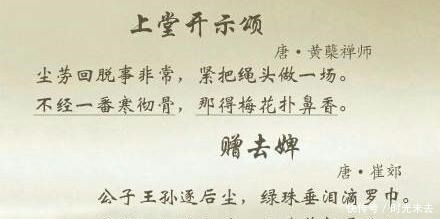 上堂开示颂
唐·黄檗禅师
尘劳回脱事非常，紧把绳头做一场。
不经一番寒彻骨，那得梅花扑鼻香。
赠去婢
唐·崔郊
公子王孙逐后尘，绿珠垂泪滴罗巾。
快传号/时光未去